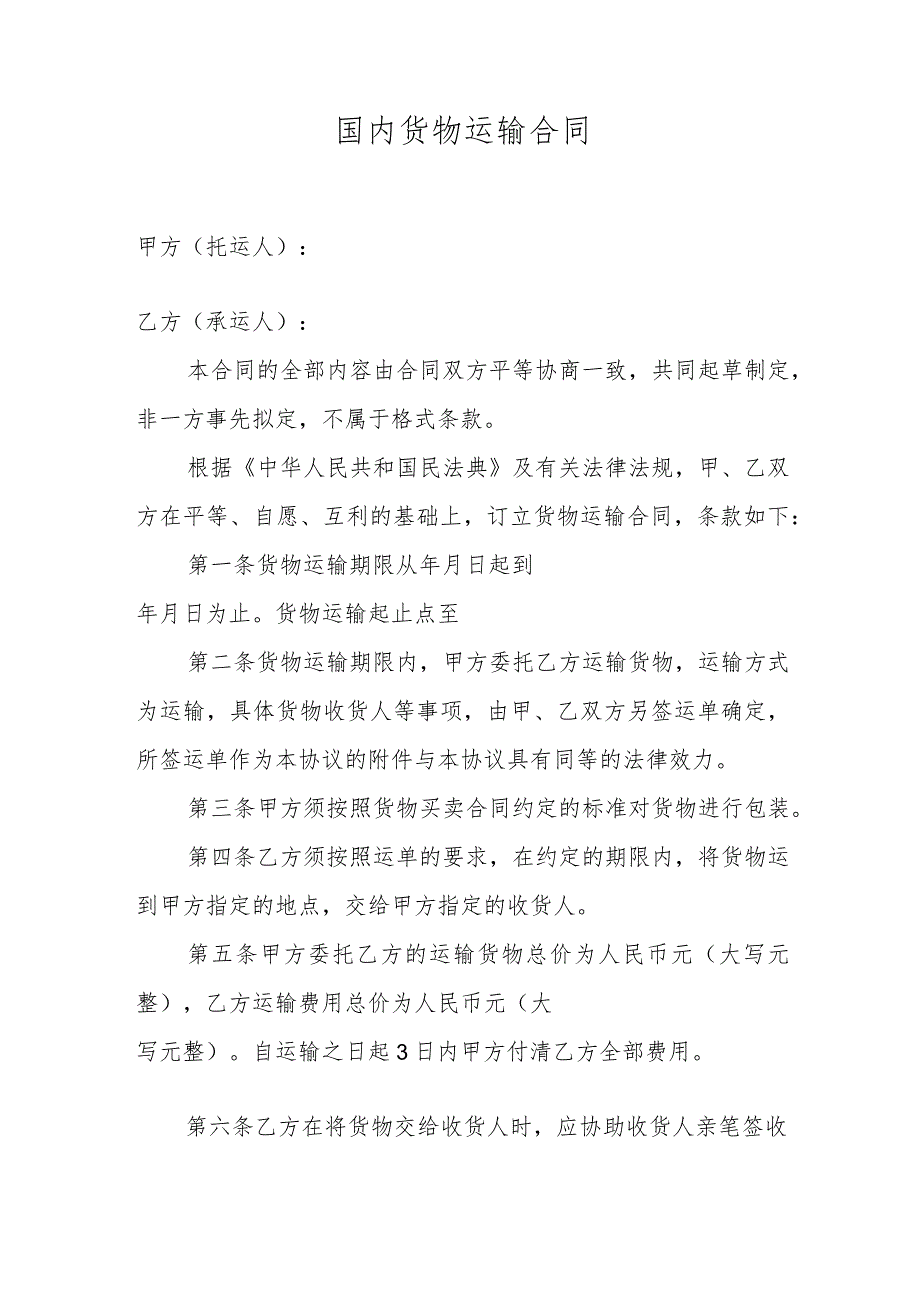 国内货物运输合同
甲方（托运人）：
乙方（承运人）：
本合同的全部内容由合同双方平等协商一致，共同起草制定，
非一方事先拟定，不属于格式条款。
根据《中华人民共和国民法典》及有关法律法规，甲、乙双
方在平等、自愿、互利的基础上，订立货物运输合同，条款如下：
第一条货物运输期限从年月日起到
年月日为止。货物运输起止点至
第二条货物运输期限内，甲方委托乙方运输货物，运输方式
为运输，具体货物收货人等事项，由甲、乙双方另签运单确定，
所签运单作为本协议的附件与本协议具有同等的法律效力。
第三条甲方须按照货物买卖合同约定的标准对货物进行包装。
第四条乙方须按照运单的要求，在约定的期限内，将货物运
到甲方指定的地点，交给甲方指定的收货人。
第五条甲方委托乙方的运输货物总价为人民币元（大写元
整），乙方运输费用总价为人民币元（大
写元整）。自运输之日起3日内甲方付清乙方全部费用。
第六条乙方在将货物交给收货人时，应协助收货人亲笔签收